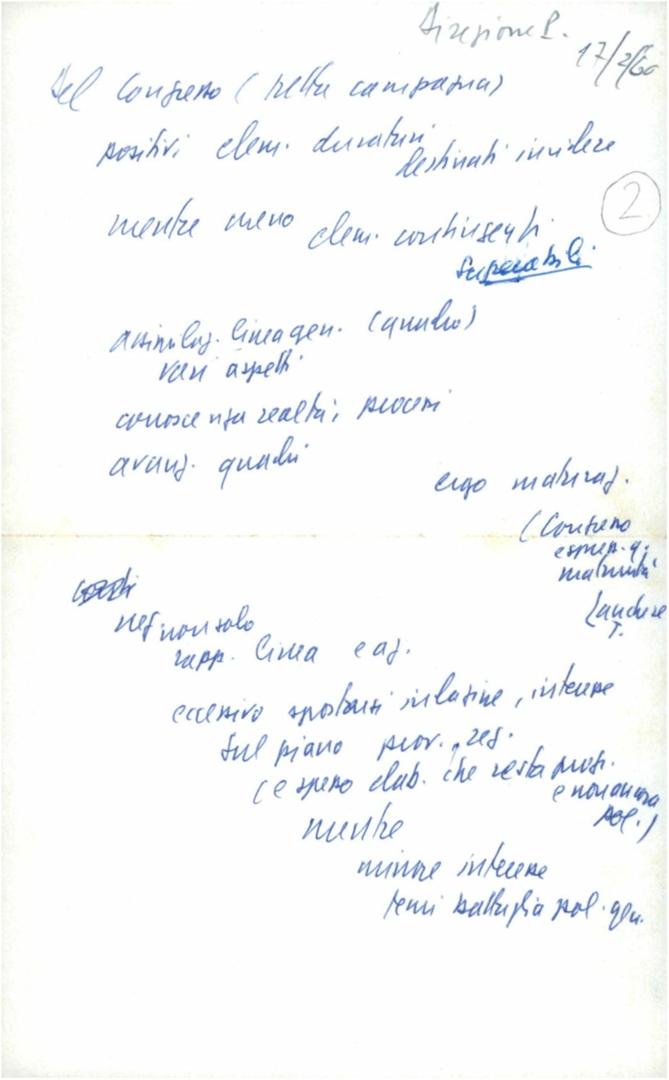 Direzione P.
17/2/60
Del Congresso (nella campagna)
positivi elem. duraturi
destinati incidere
2
mentre meno elem. contingenti
superabili
assimilaz. linea gen. (quadro)
vari aspetti
conoscenza realtà, processi
avanz. quadri
ergo maturaz.
(Congresso
maturità
(anche se
T.
neg non solo
rapp. linea e az.
eccessivo spostarsi indagine, interesse
sul piano prov., reg.
(e spesso elab. che resta
e non ancora
pol.)
mentre
minore interesse
temi battaglia pol. gen.